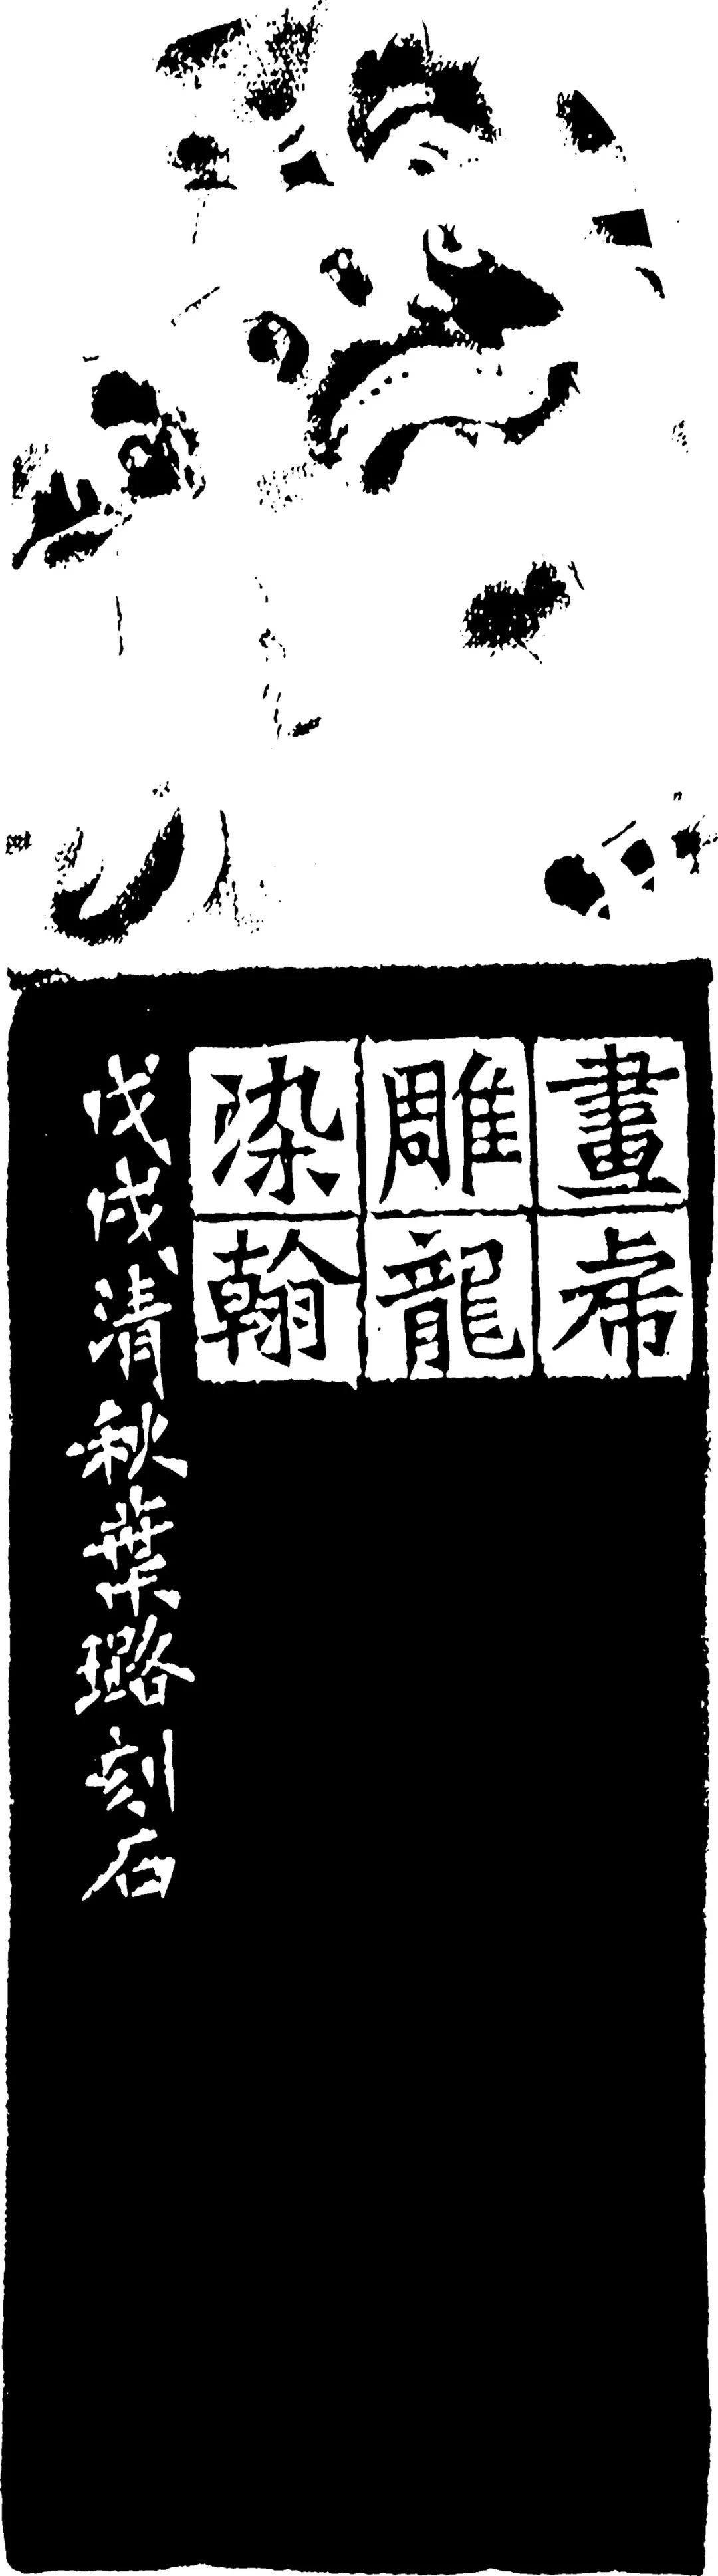 畫虎
雕龍
染翰
戊戌清秋葉璐刻石